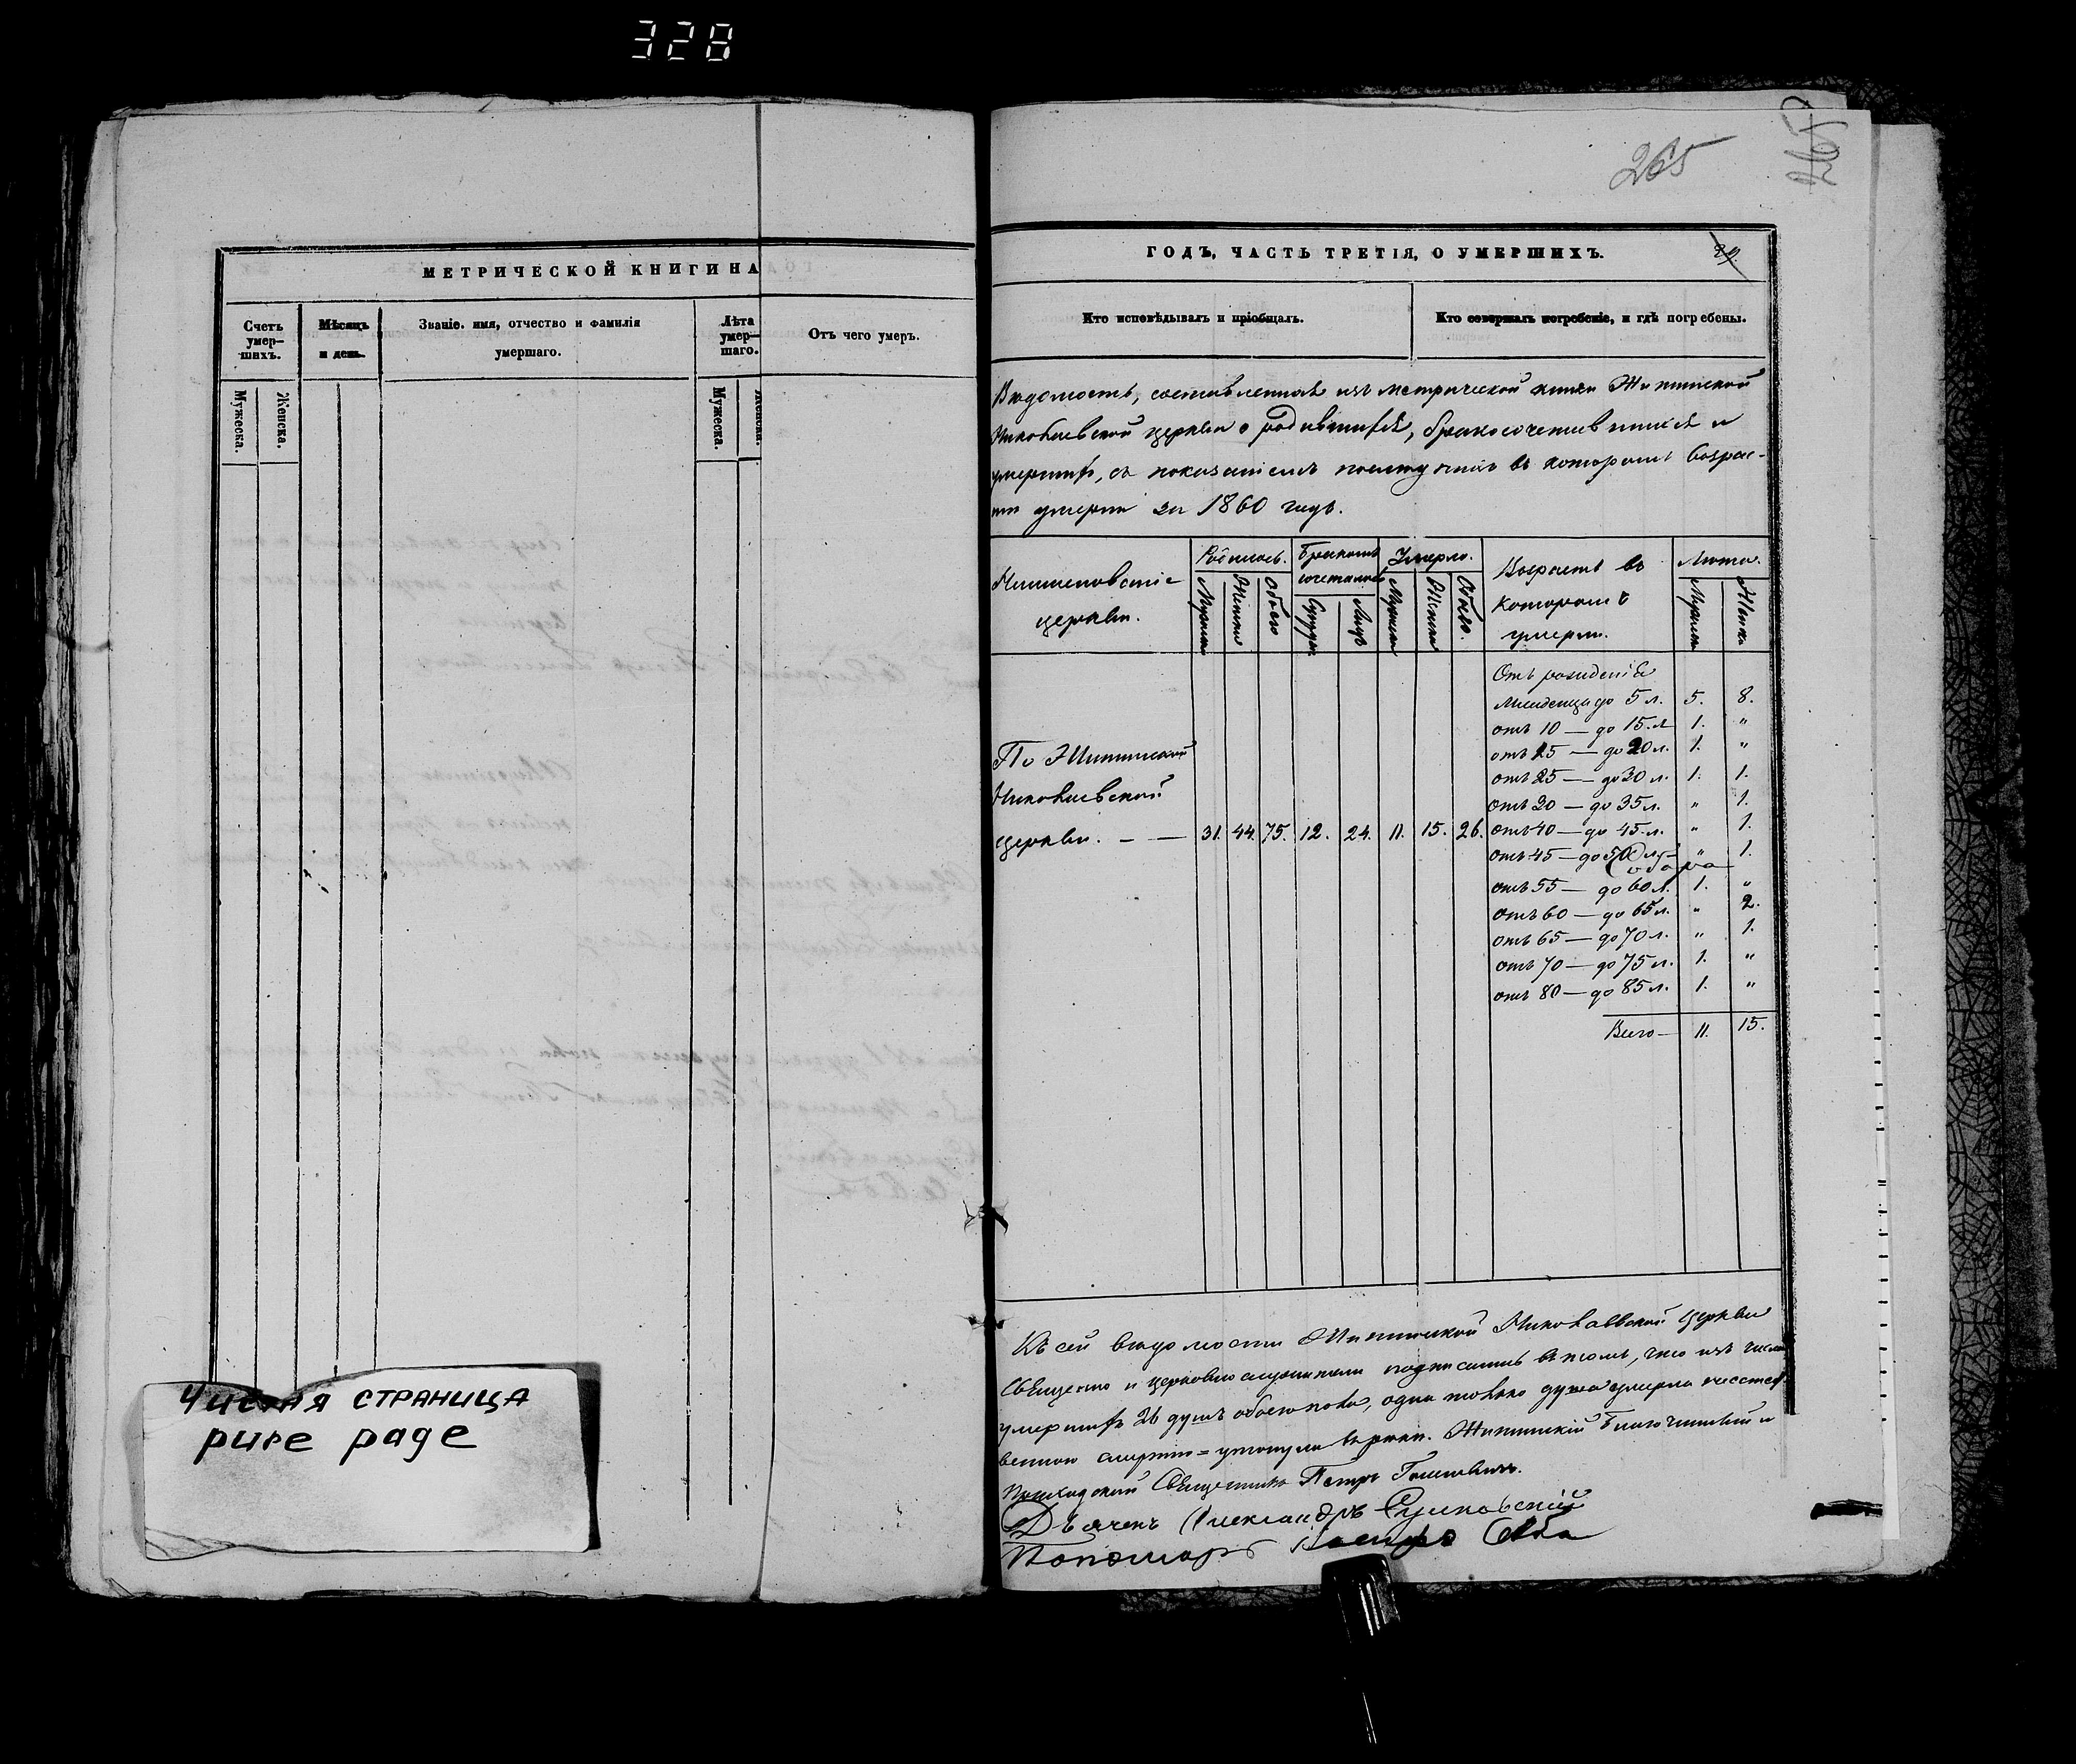 328
265
265
МЕТРИЧЕСКОЙ КНИГИ НА
Счетъ умер— шихъ.
Мѣсяцъ и день.
Званіе. имя, отчество и фамилія умершаго.
Лѣта умер— шаго.
Отъ чего умеръ.
Мужеска.
Женска.
Мужеска.
Женска.
Чистая страница
pure page
ГОДЪ, ЧАСТЬ ТРЕТІЯ, О УМЕРШИХЪ.
29.
Кто исповѣдывалъ и пріобщалъ.
Кто совершалъ погребеніе, и гдѣ погребены.
Вѣдомость, составленная изъ метрической книги
Николаевской церкви о родившихся, бракосочетавшихся и
умершихъ, съ показаніемъ въ которомъ возрас-
тѣ умерли за 1860 годъ.
Наименованіе церкви.
Родилось.
Бракомъ сочеталось
Умерло.
Возрастъ въ которомъ умерли.
Лѣта.
Мужска
Женска
Обоего
Супруж.
Лицъ
Мужска
Женска
Обоего.
Мужска
Женска
Отъ рожденія
Младенца до 5 л. 5. 8.
отъ 10 — до 15. л 1. "
отъ 15 — до 20 л. 1. "
отъ 25 — до 30 л. 1. 1.
отъ 20 — до 35 л. " 1.
По
Николаевской
церкви. — — 31. 44. 75. 12. 24. 11. 15. 26. отъ 40 — до 45 л. " 1.
отъ 45 — до 50 л. " 1.
отъ 55 — до 60 л. 1. "
отъ 60 — до 65 л. " 2.
отъ 65 — до 70 л. " 1.
отъ 70 — до 75 л. 1. "
отъ 80 — до 85 л. 1. "
Всего — 11. 15.
Къ сей вѣдомости Николаевской церкви
Священно и церковнослужители подписались въ томъ, что изъ числа
умершихъ 26 душъ обоего пола, одна только душа умерла неестест
венною смертію = утонула въ рѣки. Благочинный и
Приходской Священникъ Петръ
Дьячекъ Александръ
Пономарь